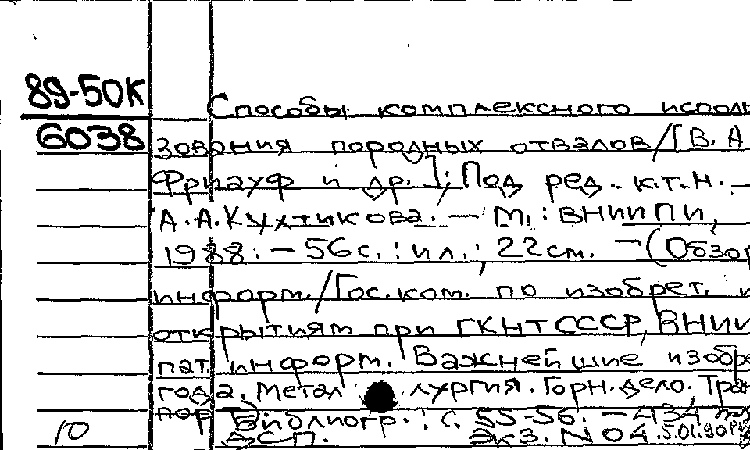 89-50К
6038
Способы комплексного исполь
зования породных отвалов/[В.А
Фриауф и др.]; Под ред. к.т.н.
А.А.Кухтикова. — М.: ВНИИПИ,
1988. — 56с.: ил.; 22см. — (Обзор
информ./Гос.ком. по изобрет. и
открытиям при ГКНТ СССР, ВНИИ
пат. информ. Важнейшие изобре
года. Металлургия. Горн. дело. Тран
пор
Библиогр.: с. 55-56. — 434
10
ДСП. Экз. N 04